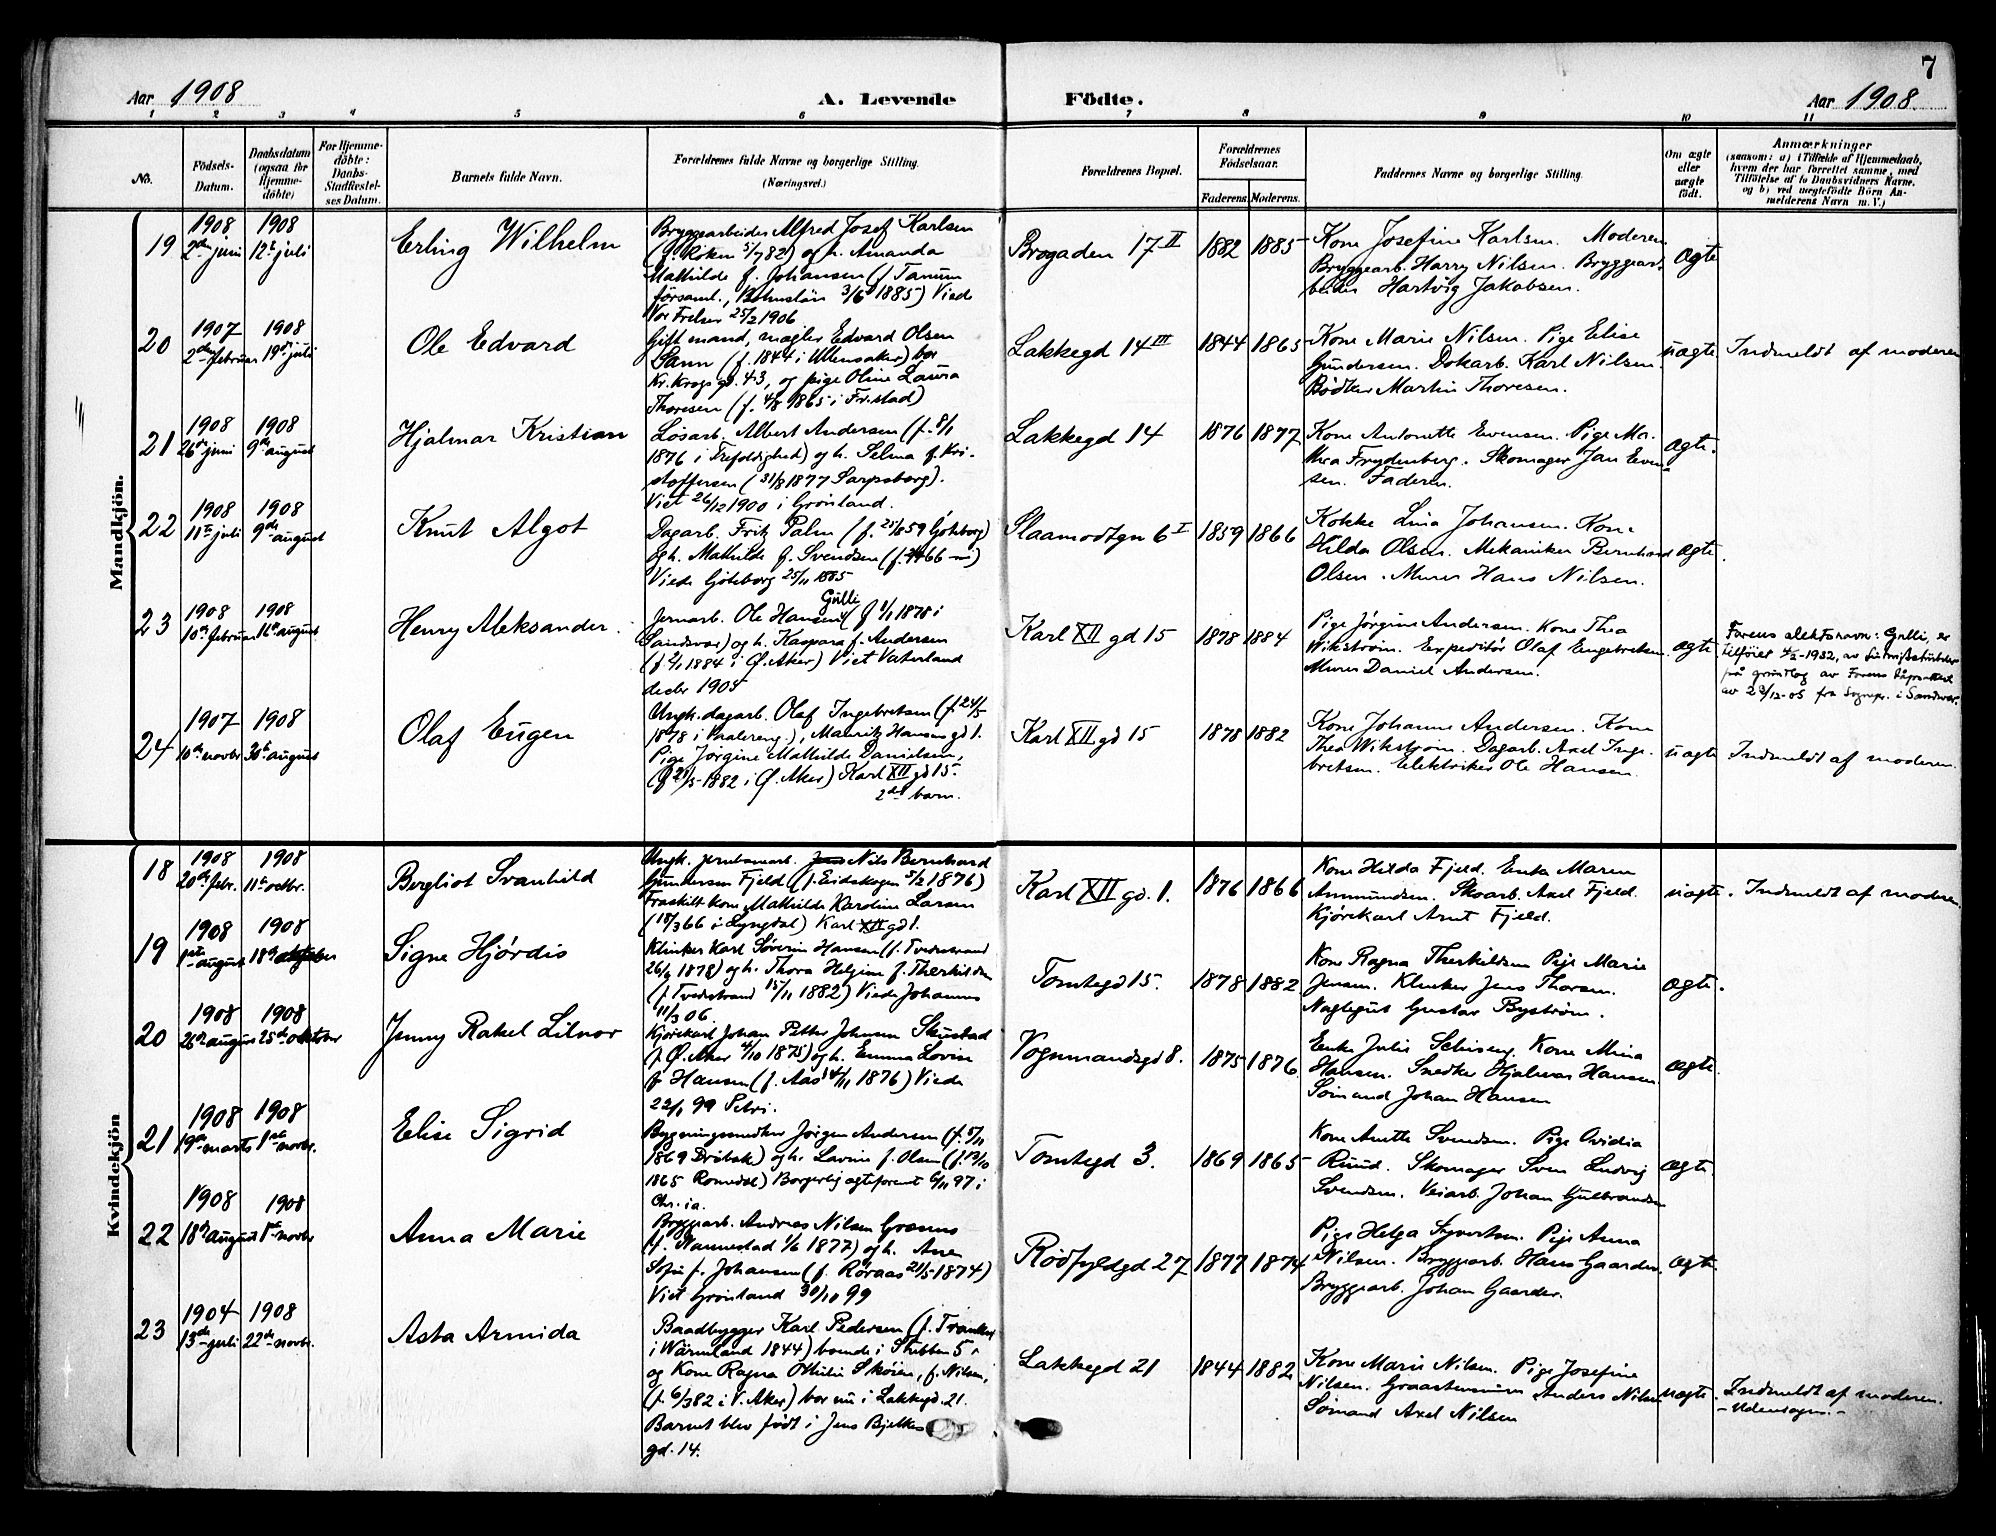 7
Aar 1908
A. Levende
Födte.
Aar 1908.
1 2 3 4 5 6 7 8 9 10 11
No.
Födsels-
Datum.
Daabsdatum
(ogsaa for
Hjemme-
döbte)
For Hjemme-
döbte:
Daabs-
Stadfæstel-
ses Datum.
Barnets fulde Navn.
Forældrenes fulde Navne og borgerlige Stilling.
(Næringsvei.)
Forældrenes Bopæl.
Forældrenes
Födselsaar.
Faderens.
Moderens.
Faddernes Navne og borgerlige Stilling.
Om ægte
eller
uægte
födt.
Anmærkninger
(saasom: a) i Tilfælde af Hjemmedaab,
hvem der har forrettet samme, med
Tilføielse af to Daabsvidners Navne,
og b) ved uægtefödte Börn An-
melderens Navn m. V.)
Mandkjön.
19
1908
2den juni
1908
12te juli
Erling Wilhelm
Bryggearbeider Alfred Josef Karlsen
(f. Röken 5/7 82) og h. Amanda
Mathilde f. Johansen (f. Tanum
församl., Bohuslän 3/6 1885) Viede
Vor Frelser 25/2 1906
Brogaden 17 II
1882
1885
Kone Josefine Karlsen. Moderen
Bryggearb. Harry Nilsen. Bryggear-
beider Hartvig Jakobsen.
Ægte
20
1907
2den februar
1908
19de juli
Ole Edvard
Gift mand, mægler Edvard Olsen
Sann (f. 1844 i Ullensaker) bor
Kr. Krogs gd. 43, og pige Oline Laura
Thoresen (f. 4/8 1865 i Fr.stad)
Lakkegd 14 III
1844
1865
Kone Marie Nilsen. Pige Elise
Gundersen. Dokarb. Karl Nilsen.
Bødker Martin Thoresen.
uægte.
Indmeldt af moderen
21
1908
26de juni
1908
9de august
Hjalmar Kristian
Løsarb. Albert Andersen (f. 8/1
1876 i Trefoldighed) og h. Selma f. Kri-
stoffersen (31/8 1877 Sarpsborg).
Viet 26/12 1900 i Grønland.
Lakkegd 14
1876
1877
Kone Antonette Evensen. Pige Ma-
thea Frydenberg. Skomager Jan Even-
sen. Faderen.
Ægte.
22
1908
11te juli
1908
9de august
Knut Algot
Dagarb. Fritz Palm (f. 25/10 59 Göteborg)
og h. Mathilde f. Svendsen
Viede Göteborg 25/11 1885
Slaamodtgn 6 I
1859
1866
Kokke Lina Johansen. Kone
Hilda Olsen. Mekaniker Bernhard
Olsen. Murer Hans Nilsen.
ægte.
23
1908
10de februar
1908
16de august
Henry Aleksander.
Jernarb. Ole Hansen Gulli (f. 1/1 1878 i
Sandsvær) og h. Kaspara f. Andersen
(f. 2/1 1884 i Ø. Aker) Viet Vaterland
decbr 1905
Karl XII gd 15
1878
1884
Pige Jørgine Andersen. Kone Thea
Wikstrøm. Expeditør Olaf Engebretsen.
Murer Daniel Andersen.
ægte.
Farens slektsnavn: Gulli, er
tilföiet 4/2-1932, av
på grunnlag av Farens dåpsattest
av 23/12-05 fra Sognepr. i Sandsvær.
24
1907
10de novbr
1908
30te august
Olaf Eugen
Ungk. dagarb. Olaf Ingebretsen (f. 24/5
1878 i Vaalereng.), Mauritz Hansens gd 1.
Pige Jørgine Mathilde Danielsen,
(f. 21/5-1882 i Ø. Aker) Karl XII gd 15.
2det barn.
Karl XII gd 15
1878
1882
Kone Johanne Andersen. Kone
Thea Wikstrøm. Dagarb. Axel Inge-
bretsen. Elektriker Ole Hansen.
uægte
Indmeldt af moderen.
Kvindekjön
18
1908
20de febr.
1908
11te octbr.
Bergliot Svanhild
Ungk. Nils Bernhard
Gundersen Fjeld (f. Eidskogen 5/2 1876)
Fraskilt kone Mathilde Karoline Larsen
(18/3 66 i Lyngdal) Karl XII gd 1.
Karl XII gd. 1.
1876
1866
Kone Hilda Fjeld. Enke Maren
Ammundsen. Skoarb. Axel Fjeld.
Kjørekarl Arnt Fjeld.
uægte.
Indmeldt af moderen.
19
1908
1ste august
1908
18de oktober
Signe Hjørdis
Klinker Karl Søverin Hansen (f. Tvedestrand
26/9 1878) og h. Thora Helgine f. Therkildsen
(f. Tvedestrand 15/11 1882) Viede Johannes
11/3 06.
Tomtegd 15.
1878
1882
Kone Ragna Therkildsen Pige Marie
Jensen. Klinker Jens Thorsen.
Gustav Byström.
ægte.
20
1908
26de august
1908
25de oktober
Jenny Rakel Lilnor
Kjørekarl Johan Petter Johnsen Skustad
(f. Ø. Aker 4/10 1875) og h. Emma Lovise
f. Hansen (f. Aas 14/11 1876) Viede
22/1 99 Petri.
Vognmandsgd 8.
1875
1876
Enke Julie Kone Mina
Hansen. Snedker Hjalmar Hansen
Sømand Johan Hansen
ægte.
21
1908
19de marts
1908
1ste novbr.
Elise Sigrid
Bygningssnedker Jørgen Andersen (f. 5/11
1869 Drøbak) og h. Lavine f. Olsen (f. 13/10
1865 Romedal) Borgerlig ægteforent 6/11 97 i
Chr.ia.
Tomtegd 3.
1869
1865
Kone Anette Svendsen. Pige Ovidia
Ruud. Skomager Sven Ludvig
Svendsen. Veiarb. Johan Gulbrandsen
ægte.
22
1908
18de august
1908
1ste novbr
Anna Marie
Bryggearb. Andreas Nilsen Grønnes
(f. Nannestad 1/6 1877) og h. Ane
Sofie f. Johansen (f. Røraas 21/5-1874)
Viet Grønland 30/10 99
Rødfyldgd 27
1877
1874
Pige Helga Syvertsen. Pige Anna
Nilsen. Bryggearb. Hans Gaarder.
Bryggearb. Johan Gaarder.
ægte.
23
1904
13de juli
1908
22de novbr.
Asta Armida
Baadbygger Karl Pedersen (f.
i Wärmland 1844) boende i Stubben 5
og Kone Ragna Othilie Skøien, f. Nilsen,
(f. 6/3 82 i V. Aker) bor nu i Lakkegd. 21.
Barnet blev født i Jens Bjelkes
gd. 14.
Lakkegd 21
1844
1882
Kone Marie Nilsen. Pige Josefine
Nilsen. Anders Nilsen
Sømand Axel Nilsen
uægte
Indmeldt af moderen.
- Udensogns. -